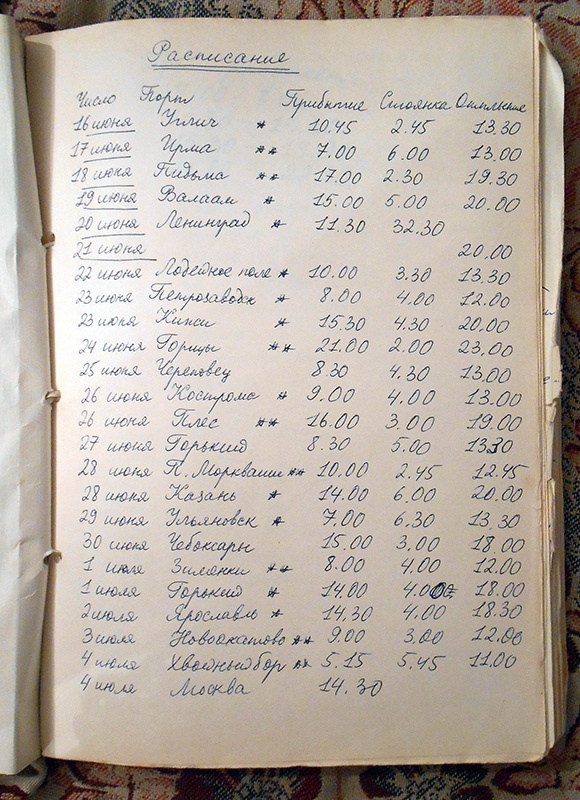 Расписание
Число Порт Прибытие Стоянка Отплытие
16 июня Углич * 10.45 2.45 13.30
17 июня Ирма ** 7.00 6.00 13.00
18 июня Пидьма ** 17.00 2.30 19.30
19 июня Валаам * 15.00 5.00 20.00
20 июня Ленинград * 11.30 32.30
21 июня 20.00
22 июня Лодейное поле * 10.00 3.30 13.30
23 июня Петрозаводск * 8.00 4.00 12.00
23 июня Кижи * 15.30 4.30 20.00
24 июня Горицы ** 21.00 2.00 23.00
25 июня Череповец 8.30 4.30 13.00
26 июня Кострома * 9.00 4.00 13.00
26 июня Плёс ** 16.00 3.00 19.00
27 июня Горький 8.30 5.00 13.30
28 июня П. Моркваши ** 10.00 2.45 12.45
28 июня Казань * 14.00 6.00 20.00
29 июня Ульяновск * 7.00 6.30 13.30
30 июня Чебоксары 15.00 3.00 18.00
1 июля Зименки ** 8.00 4.00 12.00
1 июля Горький * 14.00 4.00 18.00
2 июля Ярославль * 14.30 4.00 18.30
3 июля Новоокатово ** 9.00 3.00 12.00
4 июля Хвойный бор ** 5.15 5.45 11.00
4 июля Москва 14.30